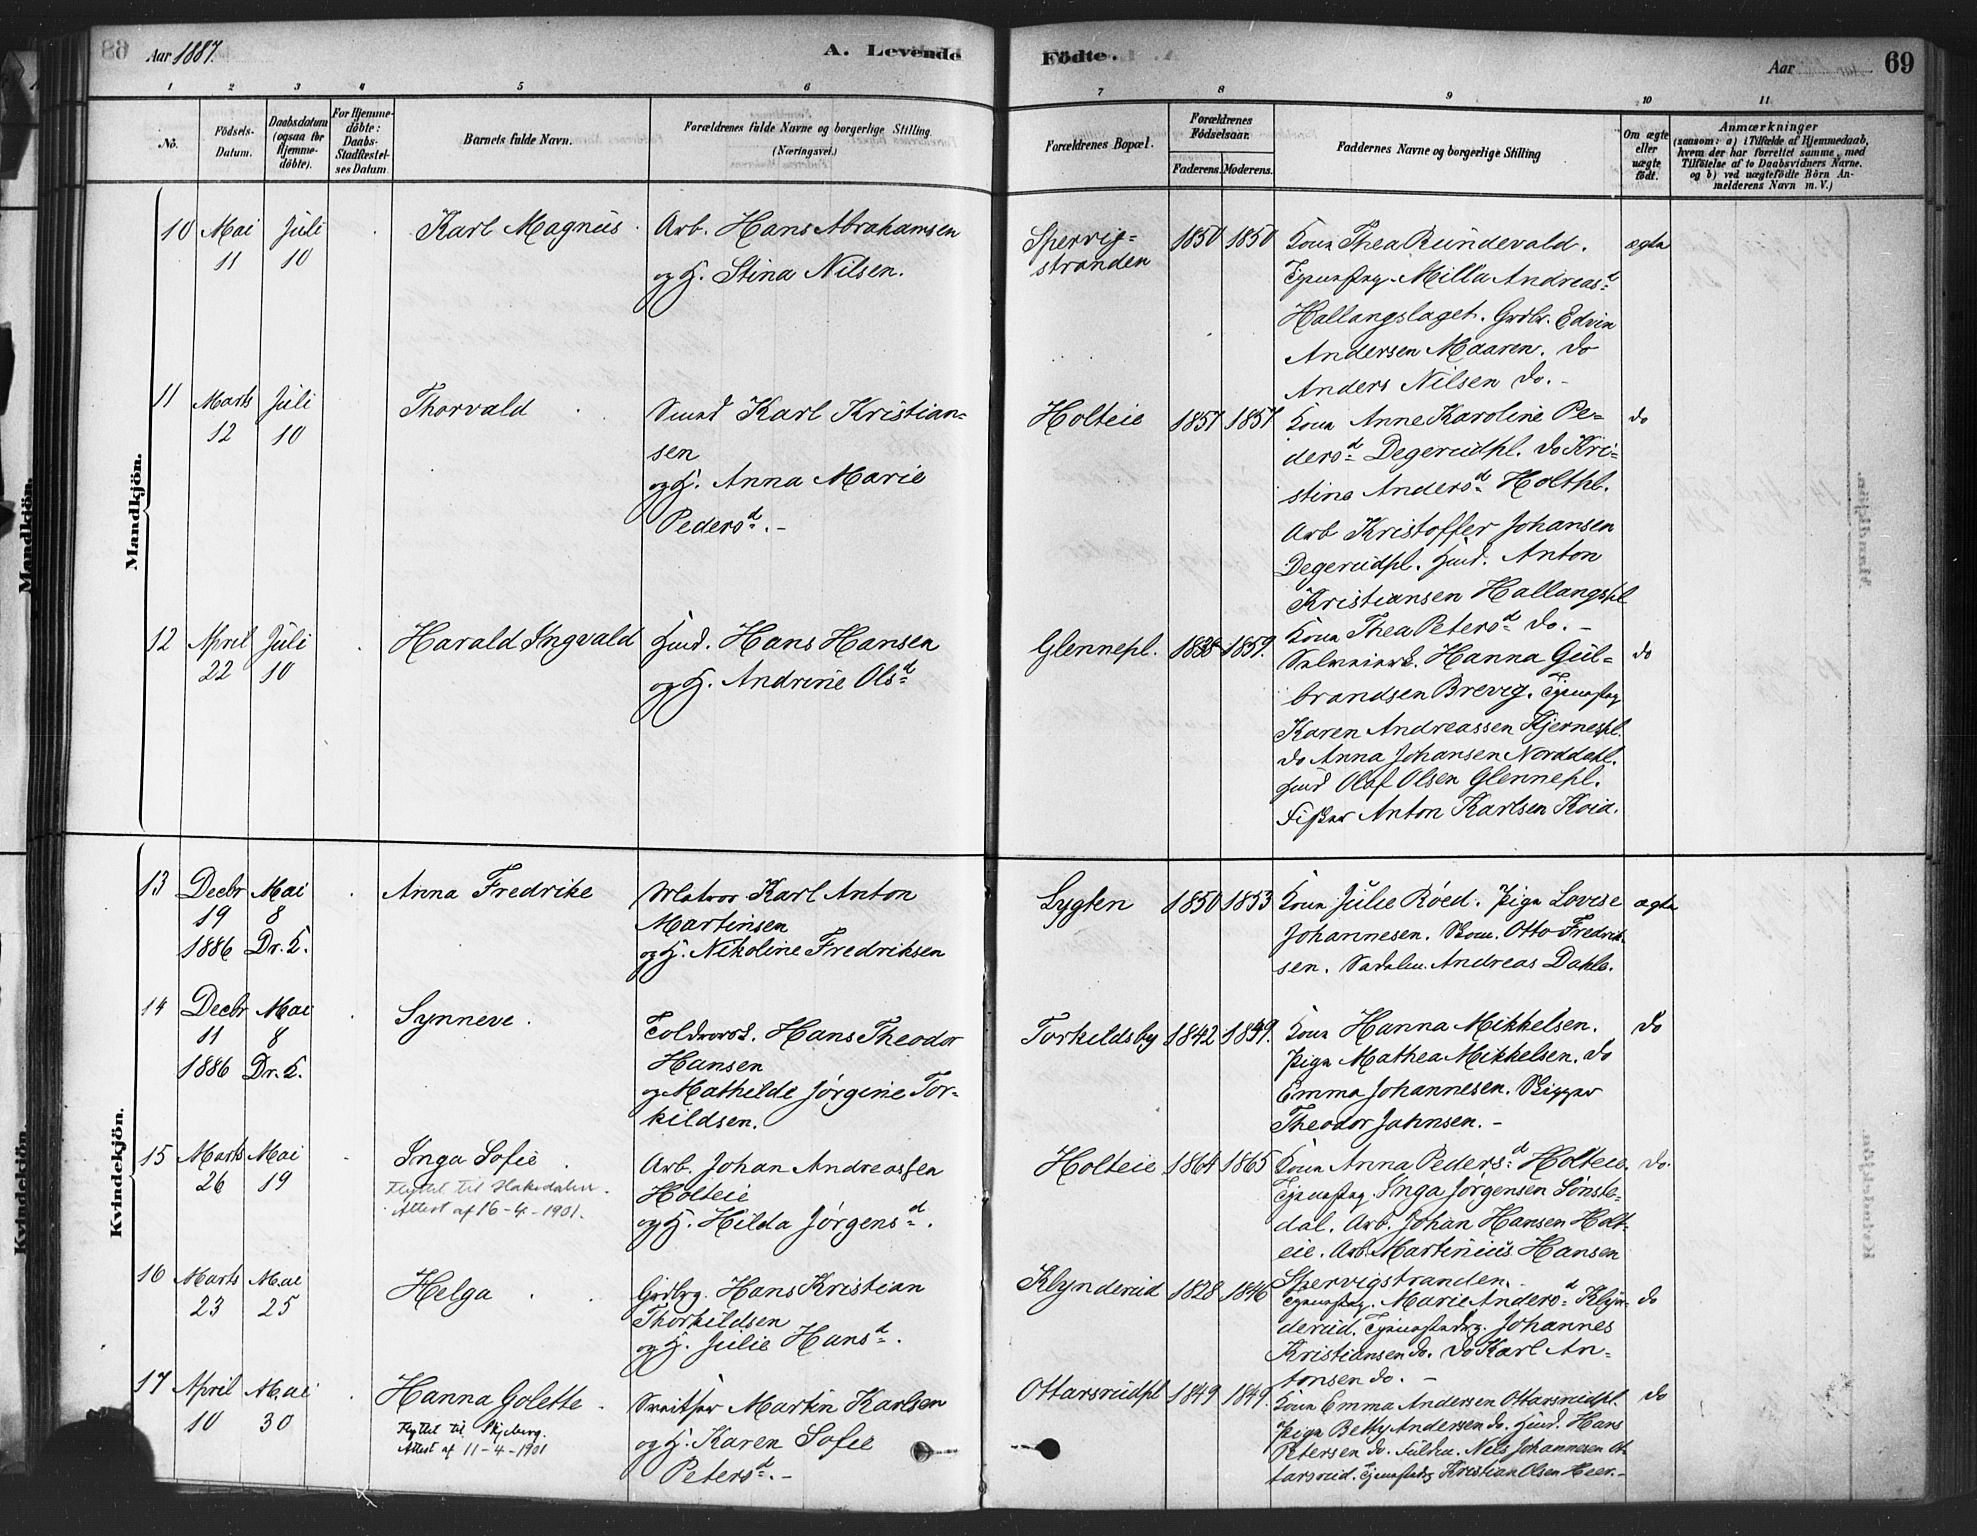 68 Aar 1887. A. Levende Födte. Aar 69
1 2 3 4 5 6 7 8 9 10 11
No.
Födsels-
Datum.
Daabsdatum
(ogsaa for
Hjemme-
döbte).
For Hjemme-
döbte:
Daabs-
Stadfæstel-
ses Datum
Barnets fulde Navn.
Forældrenes fulde Navne og borgerlige Stilling.
(Næringsvei.)
Forældrenes Bopæl.
Forældrenes
Födselsaar.
Faderens. Moderens.
Faddernes Navne og borgerlige Stilling
Om ægte
eller
uægte
födt.
Anmærkninger
(saasom: a) i Tilfælde af Hjemmedaab,
hvem der har forrettet samme, med
Tilföielse af to Daabsvidners Navne.
og b) ved uægtefödte Börn An-
melderens Navn m. V.)
Mandkjön.
10 Mai 11 Juli 10
Karl Magnus.
Arb. Hans Abrahamsen
og H. Stina Nilsen.
Spervig=
stranden
1850 1850
Kona Thea Rundevald.
Tjenestpg. Milla Andreasd
Hallangslaget. Grdbr. Edvin
Andersen Maaren. do
Anders Nilsen do. -
ægte
11 Marts 12 Juli 10
Thorvald
Smed Karl Kristian=
sen
og H. Anna Marie
Pedersd. -
Holteie
1857 1857
Kona Anne Karoline Pe-
dersd Degerudpl. do Kri-
stine Andersd Holtpl.
Arb Kristoffer Johansen
Degerudpl. Husd. Anton
Kristiansen Hallangspl
Kona Thea Petersd do. -
do
12 April 22 Juli 10
Harald Ingvald
Husd. Hans Hansen
og H. Andrine Olsd
Glennepl.
1838 1859.
Hanna Gul=
brandsen Brevig. Tjenestpg
Karen Andreassen Kjernespl.
do Anna Johansen Norddepl.
Husd Olaf Olsen Glennepl.
Fisker Anton Karlsen Koia.
do
Kvindekjön.
13 Decbr 19 1886 Mai 8 Dr. K.
Anna Fredrike
Matros Karl Anton
Martinsen
og H. Nikoline Fredriksen
Lygten
1850 1853
Kona Julie Röed. Pige Lovise
Johannesen. Skom. Otto Fredrik
sen. Sadelm. Andreas Dahle.
ægte
14 Decbr 11 1886 Mai 8 Dr. K.
Synneve.
Hans Theodor
Hansen
og Mathilde Jørgine Tor-
kildsen.
Torkildsby
1842 1849.
Kona Hanna Mikkelsen.
Pige Mathea Mikkelsen. do
Emma Johannesen. Skipper
Theodor Jahnsen. -
do
15 Marts 26 Mai 19
Inga Sofie
Flyttet til Hakedalen.
Attest af 16-4-1901.
Arb. Johan Andreassen
Holteie
og H. Hilda Jørgensd.
Holteie
1864 1865
Kona Anna Pedersd Holteie.
Tjenestpg. Inga Jørgensen Sønste-
dal. Arb. Johan Hansen Holt-
eie. Arb. Martinius Hansen
Spervigstranden.
do.
16 Marts 23 Mai 25
Helga
Grdbrg. Hans Kristian
Thorkildsen
og H. Julie Hansd.
Klynderud
1828 1846
Tjenestpg. Marie Andersd Klyn=
derud. Johannes
Kristiansen do. do Karl An=
tonsen do. -
do
17 April 10 Mai 30
Hanna Golette
Flyttet til Skjeberg.
Attest af 11-4-1901
Sveitser Martin Karlsen
og H. Karen Sofie
Petersd. -
Ottarsrudpl
1849 1849.
Kona Emma Andersen Ottarsrudpl.
Pige Betty Andersen do. Husd. Hans
Petersen do. Nels Johannesen Ot-
tarsrud. Kristian Olsen Heer. -
do